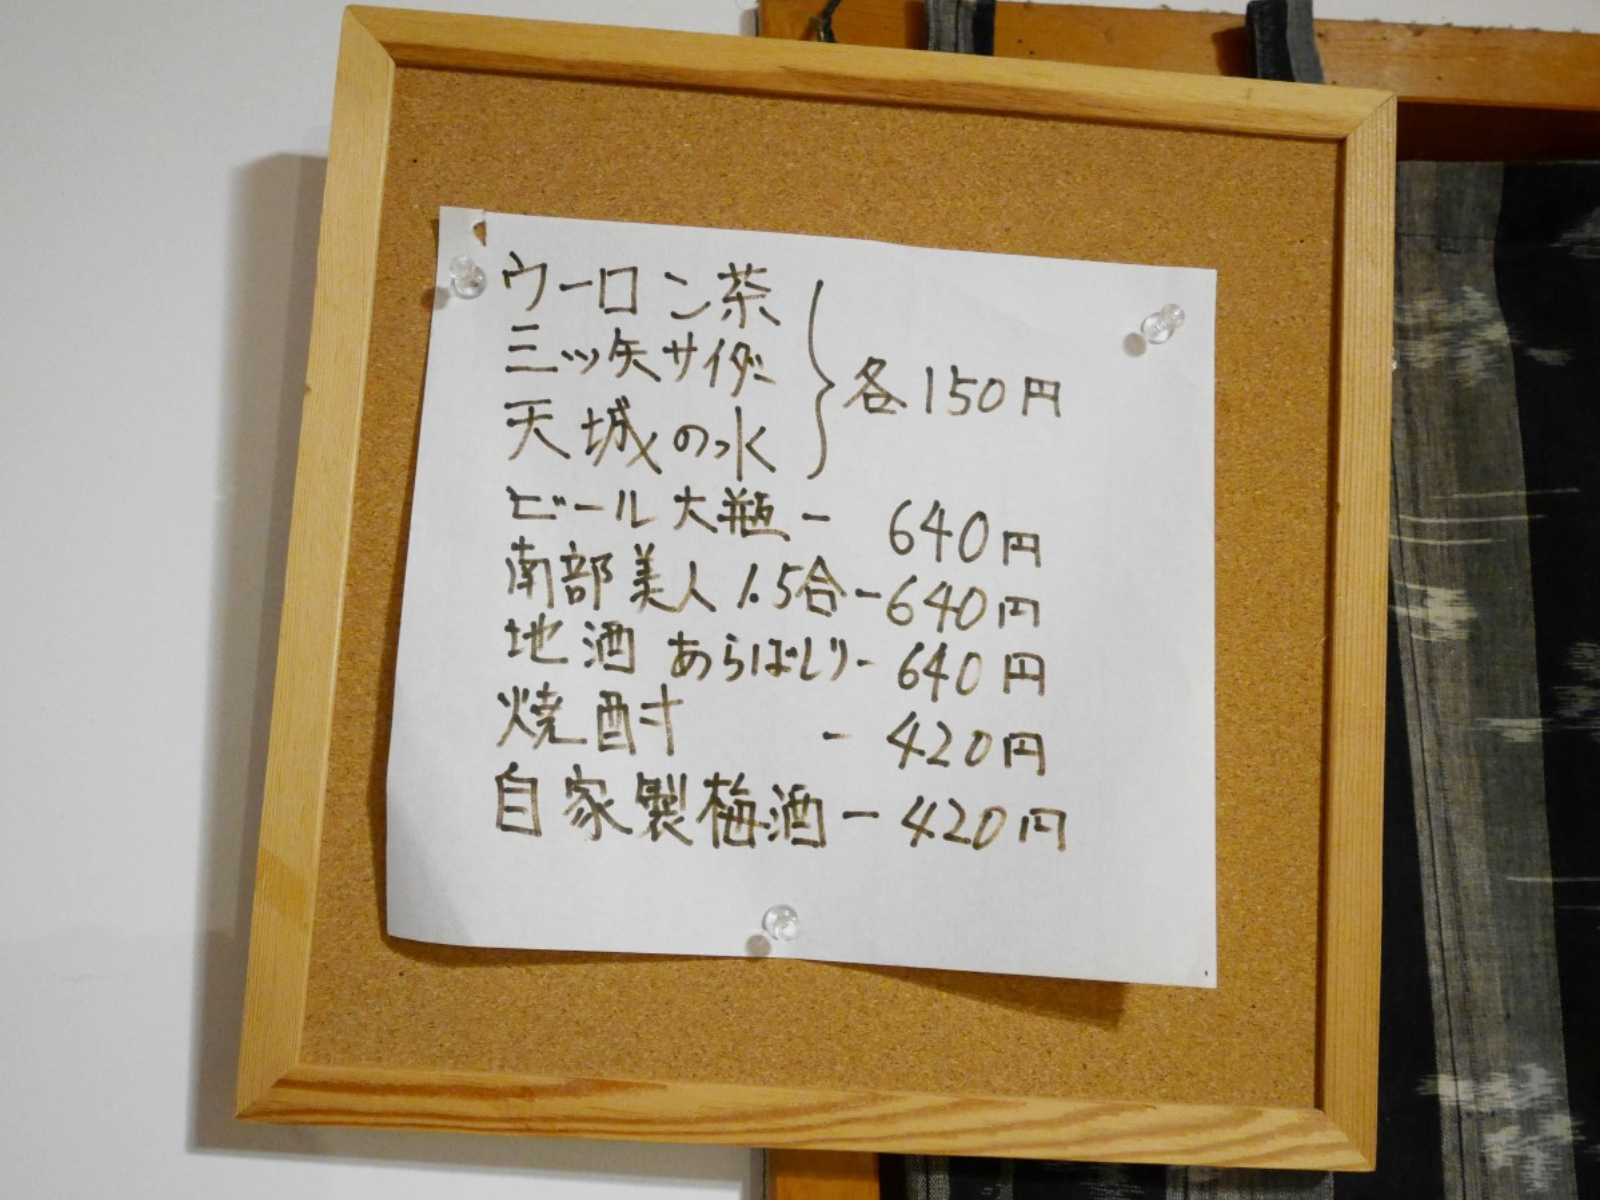 ウーロン茶
三ッ矢サイダー
天城の水
各150円
ビール大瓶ー 640円
南部美人1.5合ー640円
地酒 あらばしりー 640円
焼酎 ー 420円
自家製梅酒ー420円